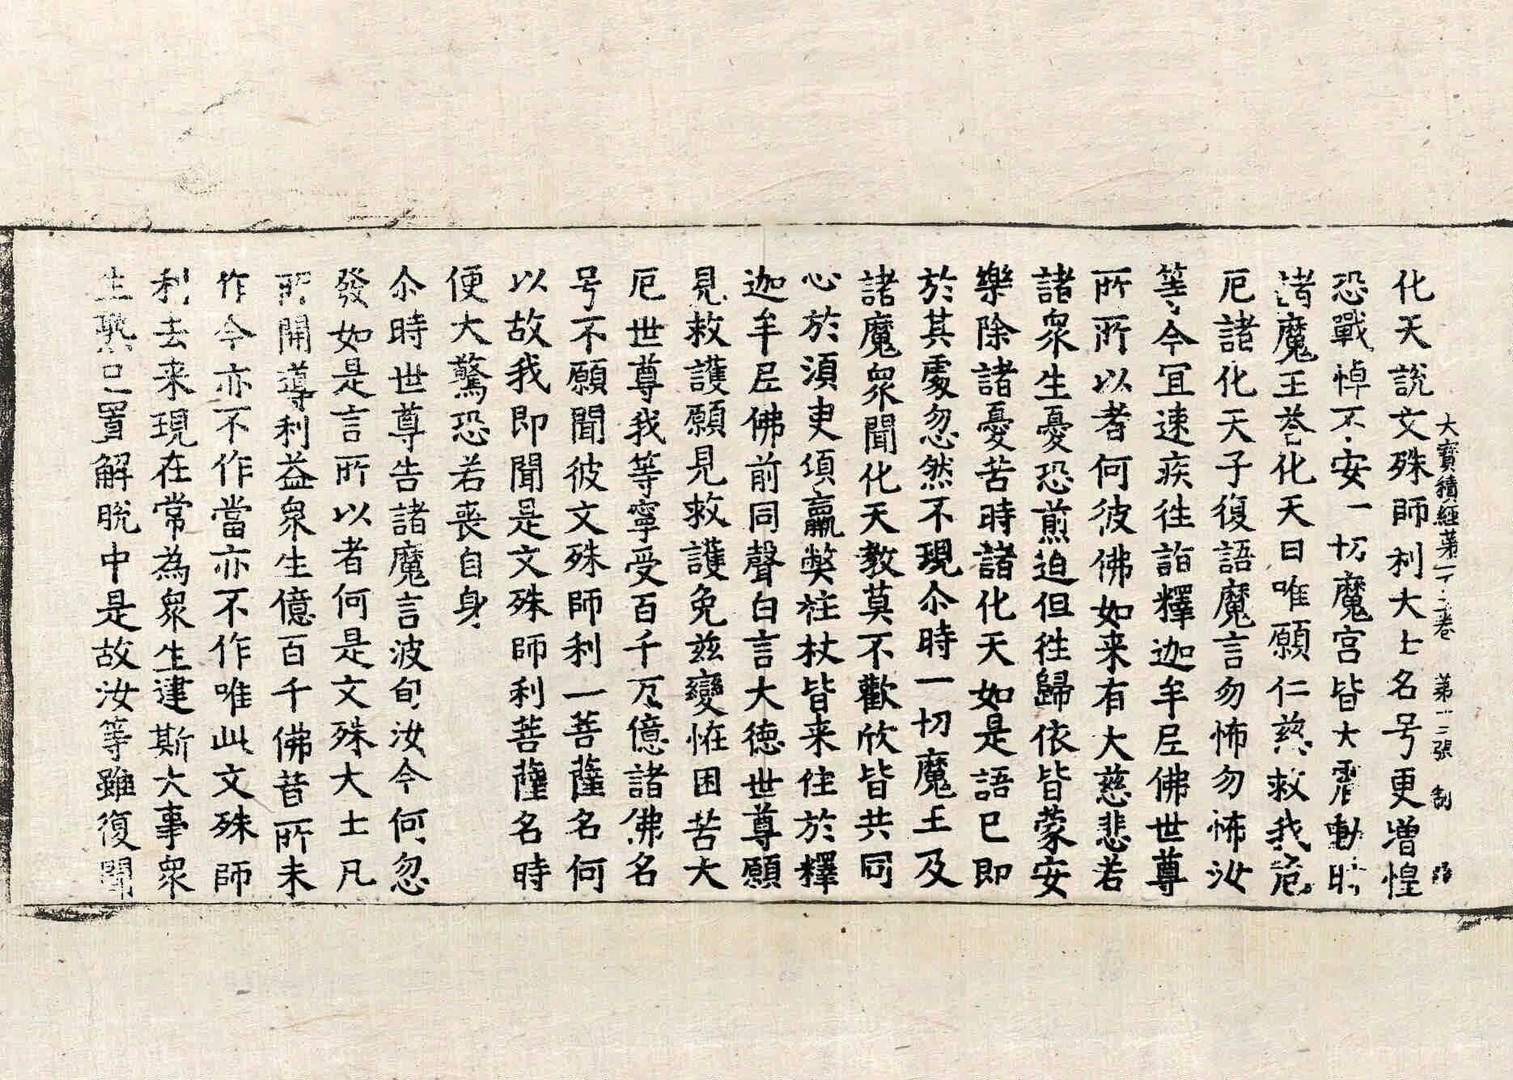 大寶積經第二卷 第十三張 制
化天說文殊師利大士名号更增惶
恐戰悼不安一切魔宮皆大震動時
諸魔王荅化天曰唯願仁慈救我危
厄諸化天子復語魔言勿怖勿怖汝
等今宜速疾往詣釋迦牟尼佛世尊
所所以者何彼佛如来有大慈悲若
諸衆生憂恐煎迫但往歸依皆蒙安
樂除諸憂苦時諸化天如是語已即
於其處忽然不現尒時一切魔王及
諸魔衆聞化天教莫不歡欣皆共同
心於湏臾頃羸弊柱杖皆来住於釋
迦牟尼佛前同聲白言大德世尊願
見救護願見救護免茲變恠困苦大
厄世尊我等寧受百千万億諸佛名
号不願聞彼文殊師利一菩薩名何
以故我即聞是文殊師利菩薩名時
便大驚恐若喪自身
尒時世尊告諸魔言波旬汝今何忽
發如是言所以者何是文殊大士凡
所開導利益衆生億百千佛昔所未
作今亦不作當亦不作唯此文殊師
利去来現在常為衆生建斯大事衆
生熟已置解脫中是故汝等雖復聞